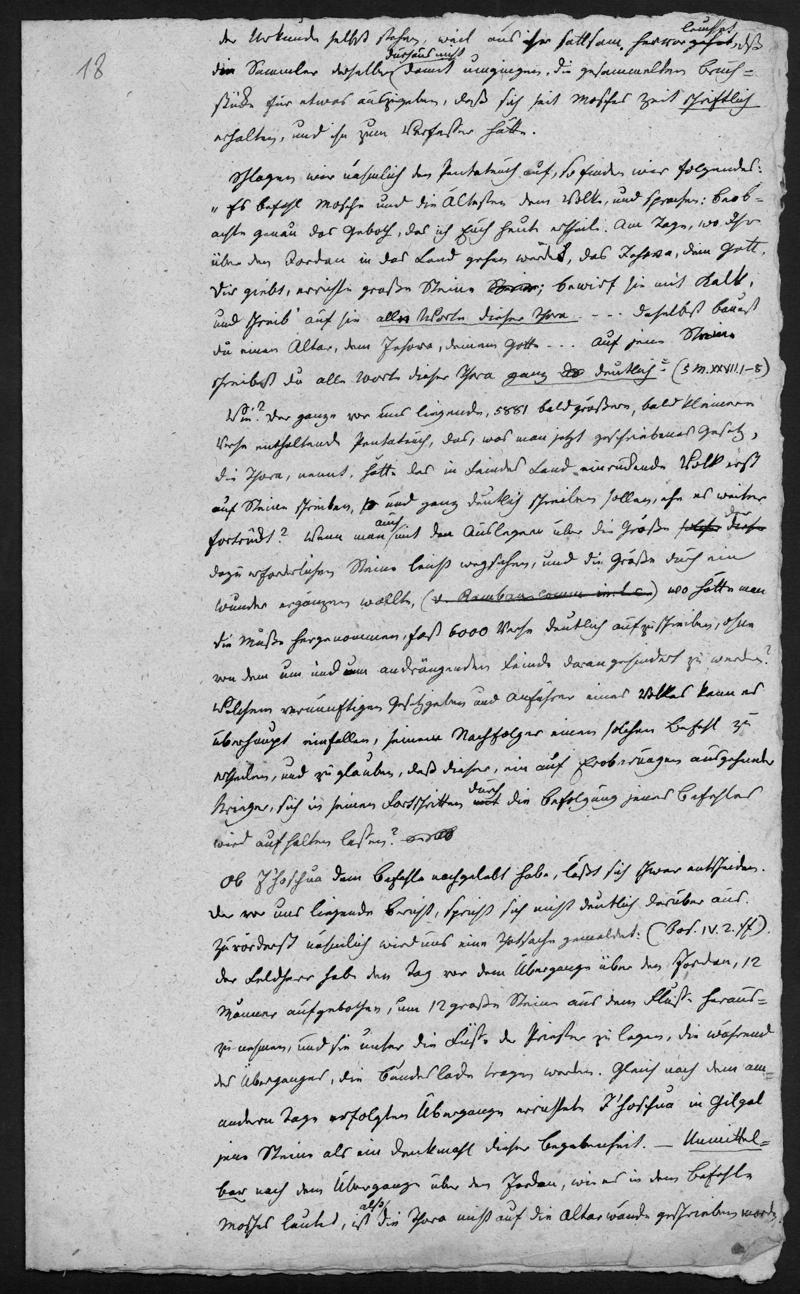 18
der Urkunde selbst stehen, weil aus ihr sattsam hervor leuchtet, daß
die Sammler derselben durchaus nicht damit umgingen, die gesammelten Bruch=
stücke für etwas auszugeben, daß sich seit Mosches Zeit schriftlich
erhalten, und ihn zum Verfasser hätte.
Schlagen wir nähmlich den Pentateuch auf, so finden wir folgendes:
„Es befahl Mosche und die Ältesten dem Volke, und sprachen: beob=
achte genau das Geboth, das ich Euch heute ertheile. Am Tage, wo Ihr
über den Jordan in das Land gehen werdet, das Jehova, dein Gott,
dir giebt, errichte große Steine; bewirf sie mit Kalk,
und schreib' auf sie alle Worte dieser Thora - - - - daselbst bauest
du einen Altar, dem Jehova, deinem Gotte - - - auf jene Steine
schreibst du alle Worte dieser Thora ganz deutlich" (5 M. XXVII. 1-8)
Wie? Der ganze vor uns liegende, 5881 bald größere, bald kleinere
Verse enthaltende Pentateuch, das, was man jetzt geschriebenes Gesetz,
die Thora, nennt, hätte das in Feindes Land einrückende Volk erst
auf Steine schreiben, und ganz deutlich schreiben sollen, ehe es weiter
fortrückt? Wenn man auch mit den Auslegern über die Größe der
dazu erforderlichen Steine leicht wegsehen, und die Größe durch ein
Wunder ergänzen wollte, (v. Ramban comm. in l. c.) wo hätte man
die Muße hergenommen, fast 6000 Verse deutlich aufzuschreiben, ohne
von dem um und um andrängenden Feinde daran gehindert zu werden?
Welchem vernünftigen Gesetzgeber und Anführer eines Volkes kann es
überhaupt einfallen, seinem Nachfolger einen solchen Befehl zu
ertheilen, und zu glauben, daß dieser, ein auf Eroberungen ausgehender
Krieger, sich in seinen Fortschritten durch die Befolgung jenes Befehles
wird aufhalten lassen?
Ob J'hoschua dem Befehle nachgelebt habe, läßt sich schwer entscheiden.
Der vor uns liegende Bericht, spricht sich nicht deutlich darüber aus.
Zuvörderst nähmlich wird uns eine Thatsache gemeldet: (Jos. IV. 2. ff).
der Feldherr habe den Tag vor dem Übergange über den Jordan, 12
Männer aufgebothen, um 12 große Steine aus dem Fluße heraus=
zunehmen, und sie unter die Füße der Priester zu legen, die während
des Überganges, die Bundeslade tragen werden. Gleich nach dem am=
andern Tage erfolgten Übergange errichtete J'hoschua in Gilgal
jene Steine als ein Denkmahl dieser Begebenheit. — Unmittel=
bar nach dem Übergange über den Jordan, wie es in dem Befehle
Mosches lautet, ist also die Thora nicht auf die Altarwände geschrieben worden.